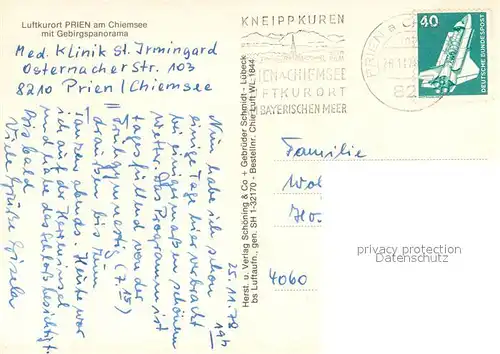 Luftkurort PRIEN am Chiemsee
mit Gebirgspanorama
Med. Klinik St. Irmingard
Osternacher Str. 103
8210 Prien / Chiemsee
25.11.78
14h
Nun habe ich schon
einige Tage hier verbracht
bei einigermaßen schönem
Wetter. Das Programm ist
tagesfüllend von der
Frühgymnastik (7.15)
draußen bis zum
Tanzen abends. Heute war
ich auf der Herreninsel
und habe das Schloß besichtigt.
Bis bald
Viele Grüße Gisela
Herst. u. Verlag Schöning & Co + Gebrüder Schmidt - Lübeck
bs Luftaufn., gen. SH 1-32170 - Bestellnr. Chie Luft WL 1844
KNEIPPKUREN
PRIEN a CHIEMSEE
LUFTKURORT
BAYERISCHEN MEER
PRIEN a CH
82
40
DEUTSCHE BUNDESPOST
Familie
Wol
Ho
4060
privacy protection
Datenschutz